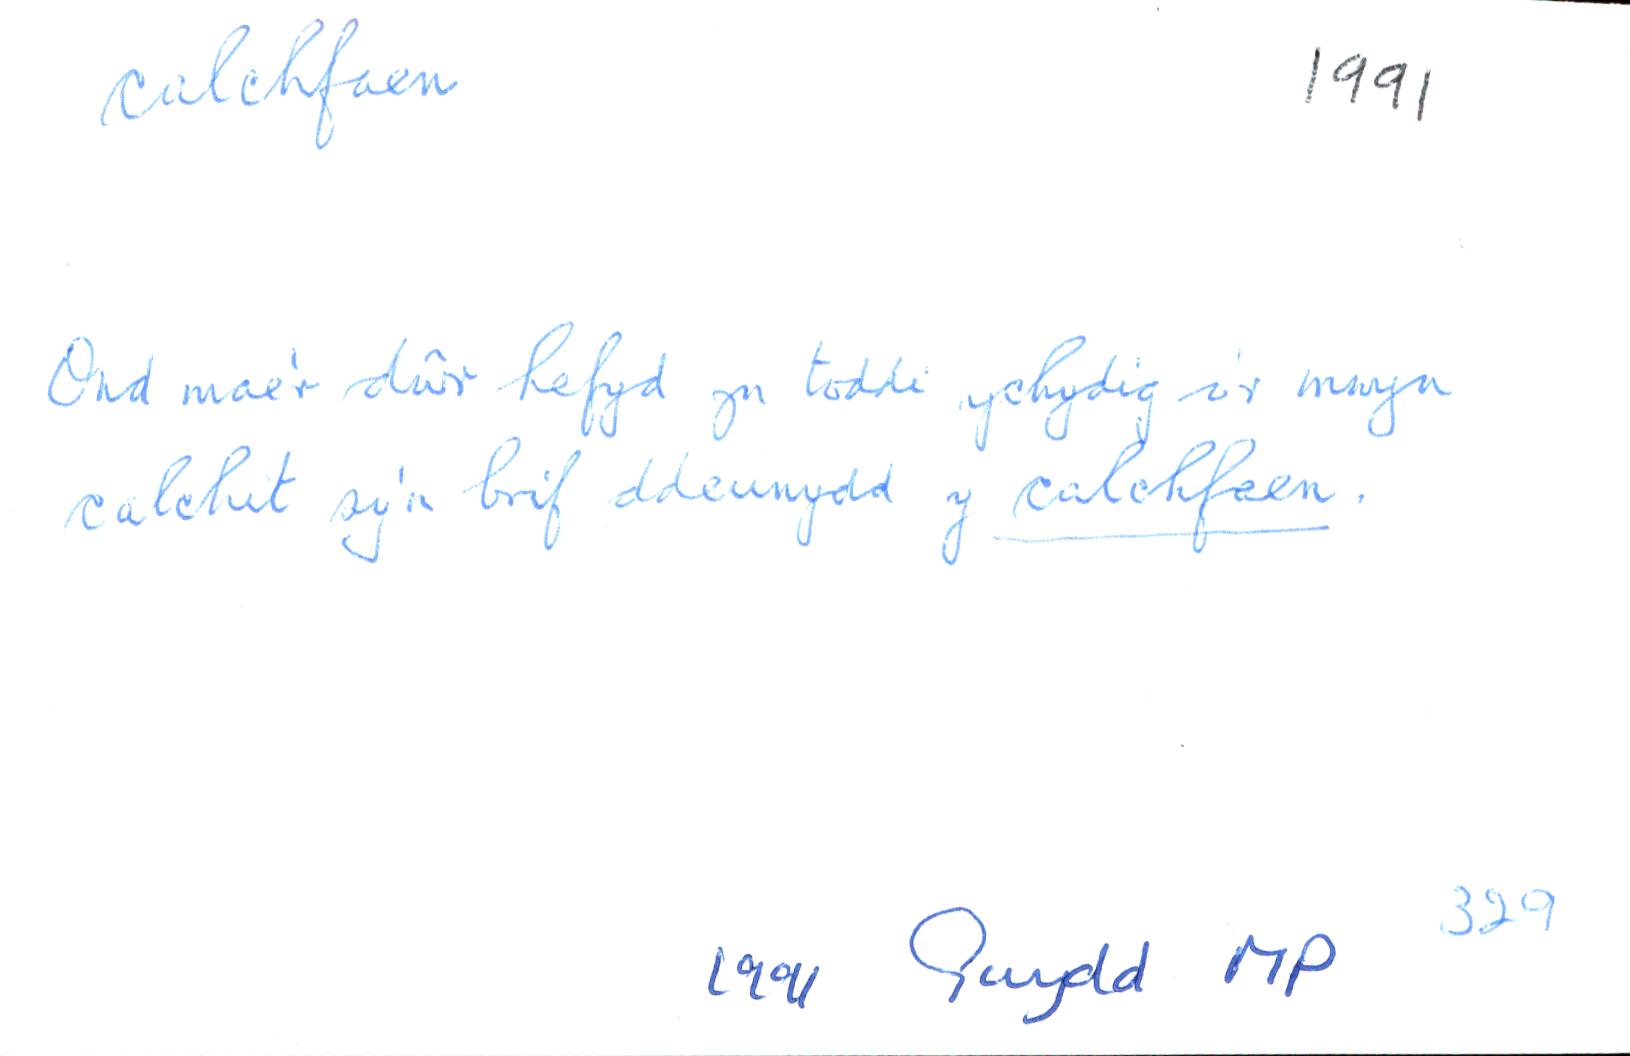 calchfaen 1991
Ond mae'r dŵr hefyd yn toddi ychydig o'r mwyn
calchit sy'n brif ddeunydd y calchfaen.
329
1991 Gwydd MP